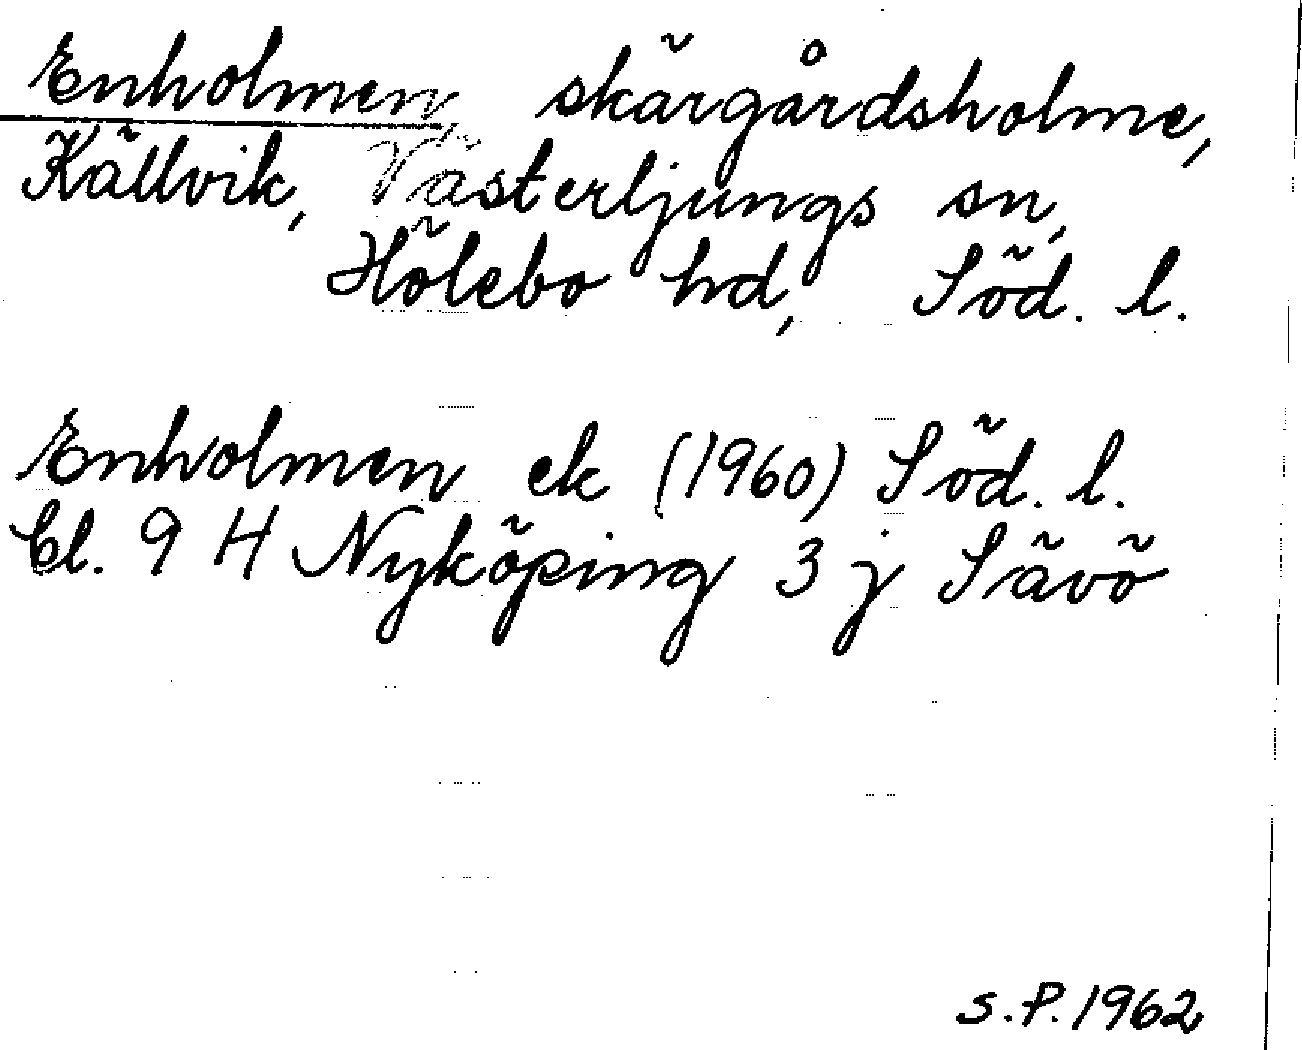 Enholmen, skärgårdsholme,
Källvik, Västerljungs sn,
Hölebo hd, Söd. l.
Enholmen ek (1960) Söd. l.
bl. 9 H Nyköping 3 j Sävö
S.P. 1962